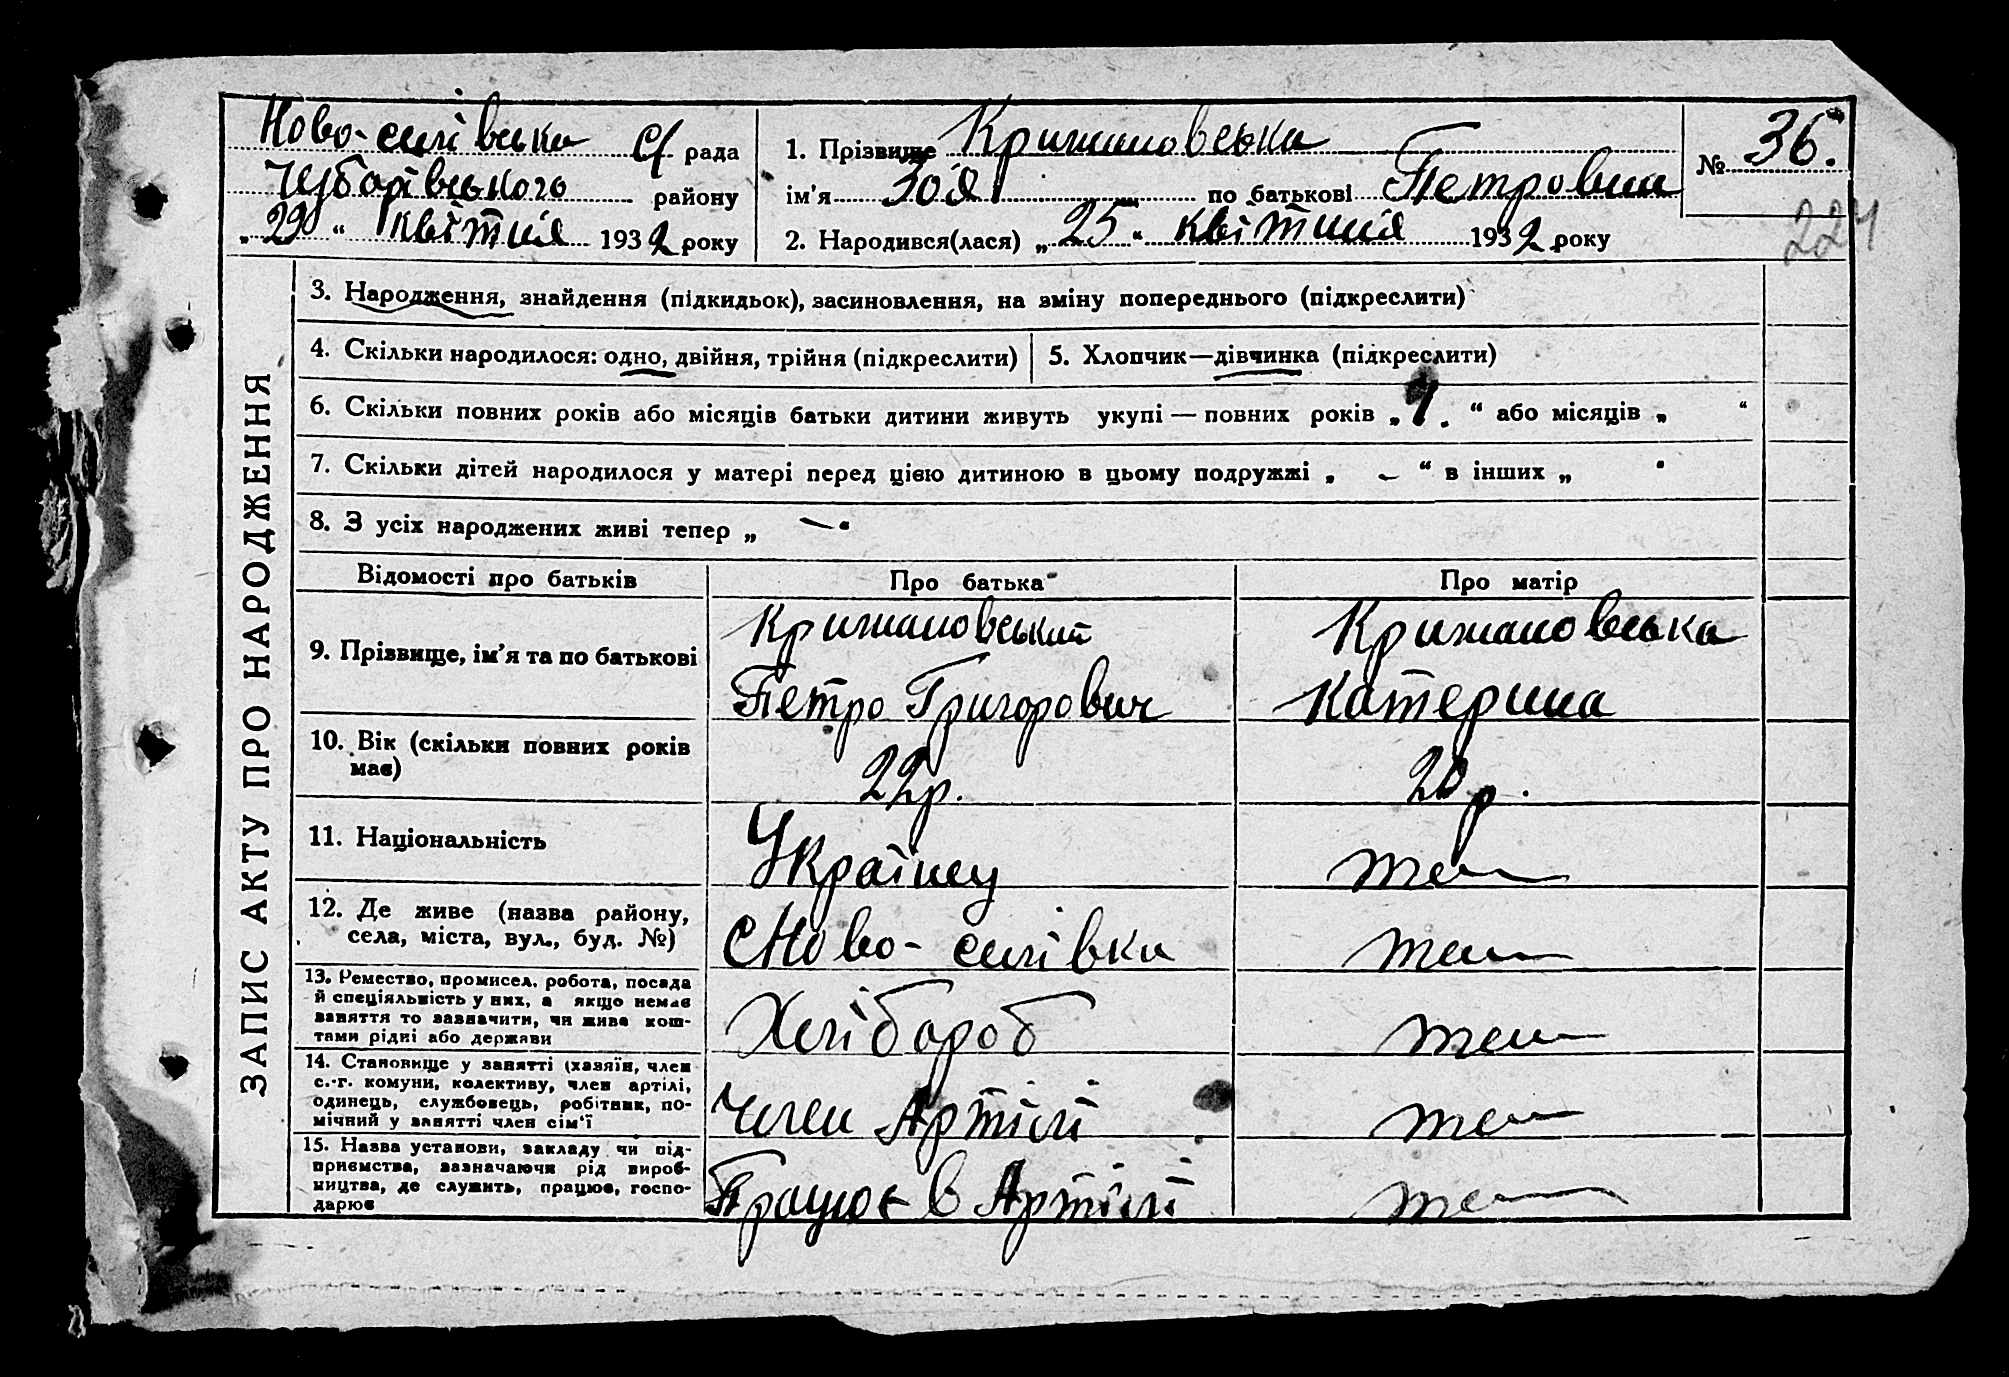 Ново-силівська С/ рада
Чубарівського району
„29“ квітня 1932 року
1. Прізвище Крижановська
ім'я Зоя по батькові Петровна
2. Народився(лася) „25“ квітня 1932 року
№ 36.
224
ЗАПИС АКТУ ПРО НАРОДЖЕННЯ
3. Народження, знайдення (підкидьок), засиновлення, на зміну попереднього (підкреслити)
4. Скільки народилося: одно, двійня, трійня (підкреслити)
5. Хлопчик—дівчинка (підкреслити)
6. Скільки повних років або місяців батьки дитини живуть укупі — повних років „1.“ або місяців „ “
7. Скільки дітей народилося у матері перед цією дитиною в цьому подружжі „ – “ в інших „ “
8. З усіх народжених живі тепер „ — “
Відомості про батьків
Про батька
Про матір
9. Прізвище, ім'я та по батькові
Крижановський
Петро Григорович
Крижановська
Катерина
10. Вік (скільки повних років
має)
22р.
20р.
11. Національність
Українец
теж
12. Де живе (назва району,
села, міста, вул., буд. №)
С Ново-силівка
теж
13. Ремество, промисел, робота, посада
й спеціяльність у них, а якщо немає
заняття то зазначити, чи живе кош-
тами рідні або держави
Хлібороб
теж
14. Становище у занятті (хазяїн, член
с.-г. комуни, колективу, член артілі,
одинець, службовець, робітник, по-
мічний у занятті член сім'ї
Член Артілі
теж
15. Назва установи, закладу чи під-
приємства, зазначаючи рід вироб-
ництва, де служить, працює, госпо-
дарює
Працює в Артілі
теж